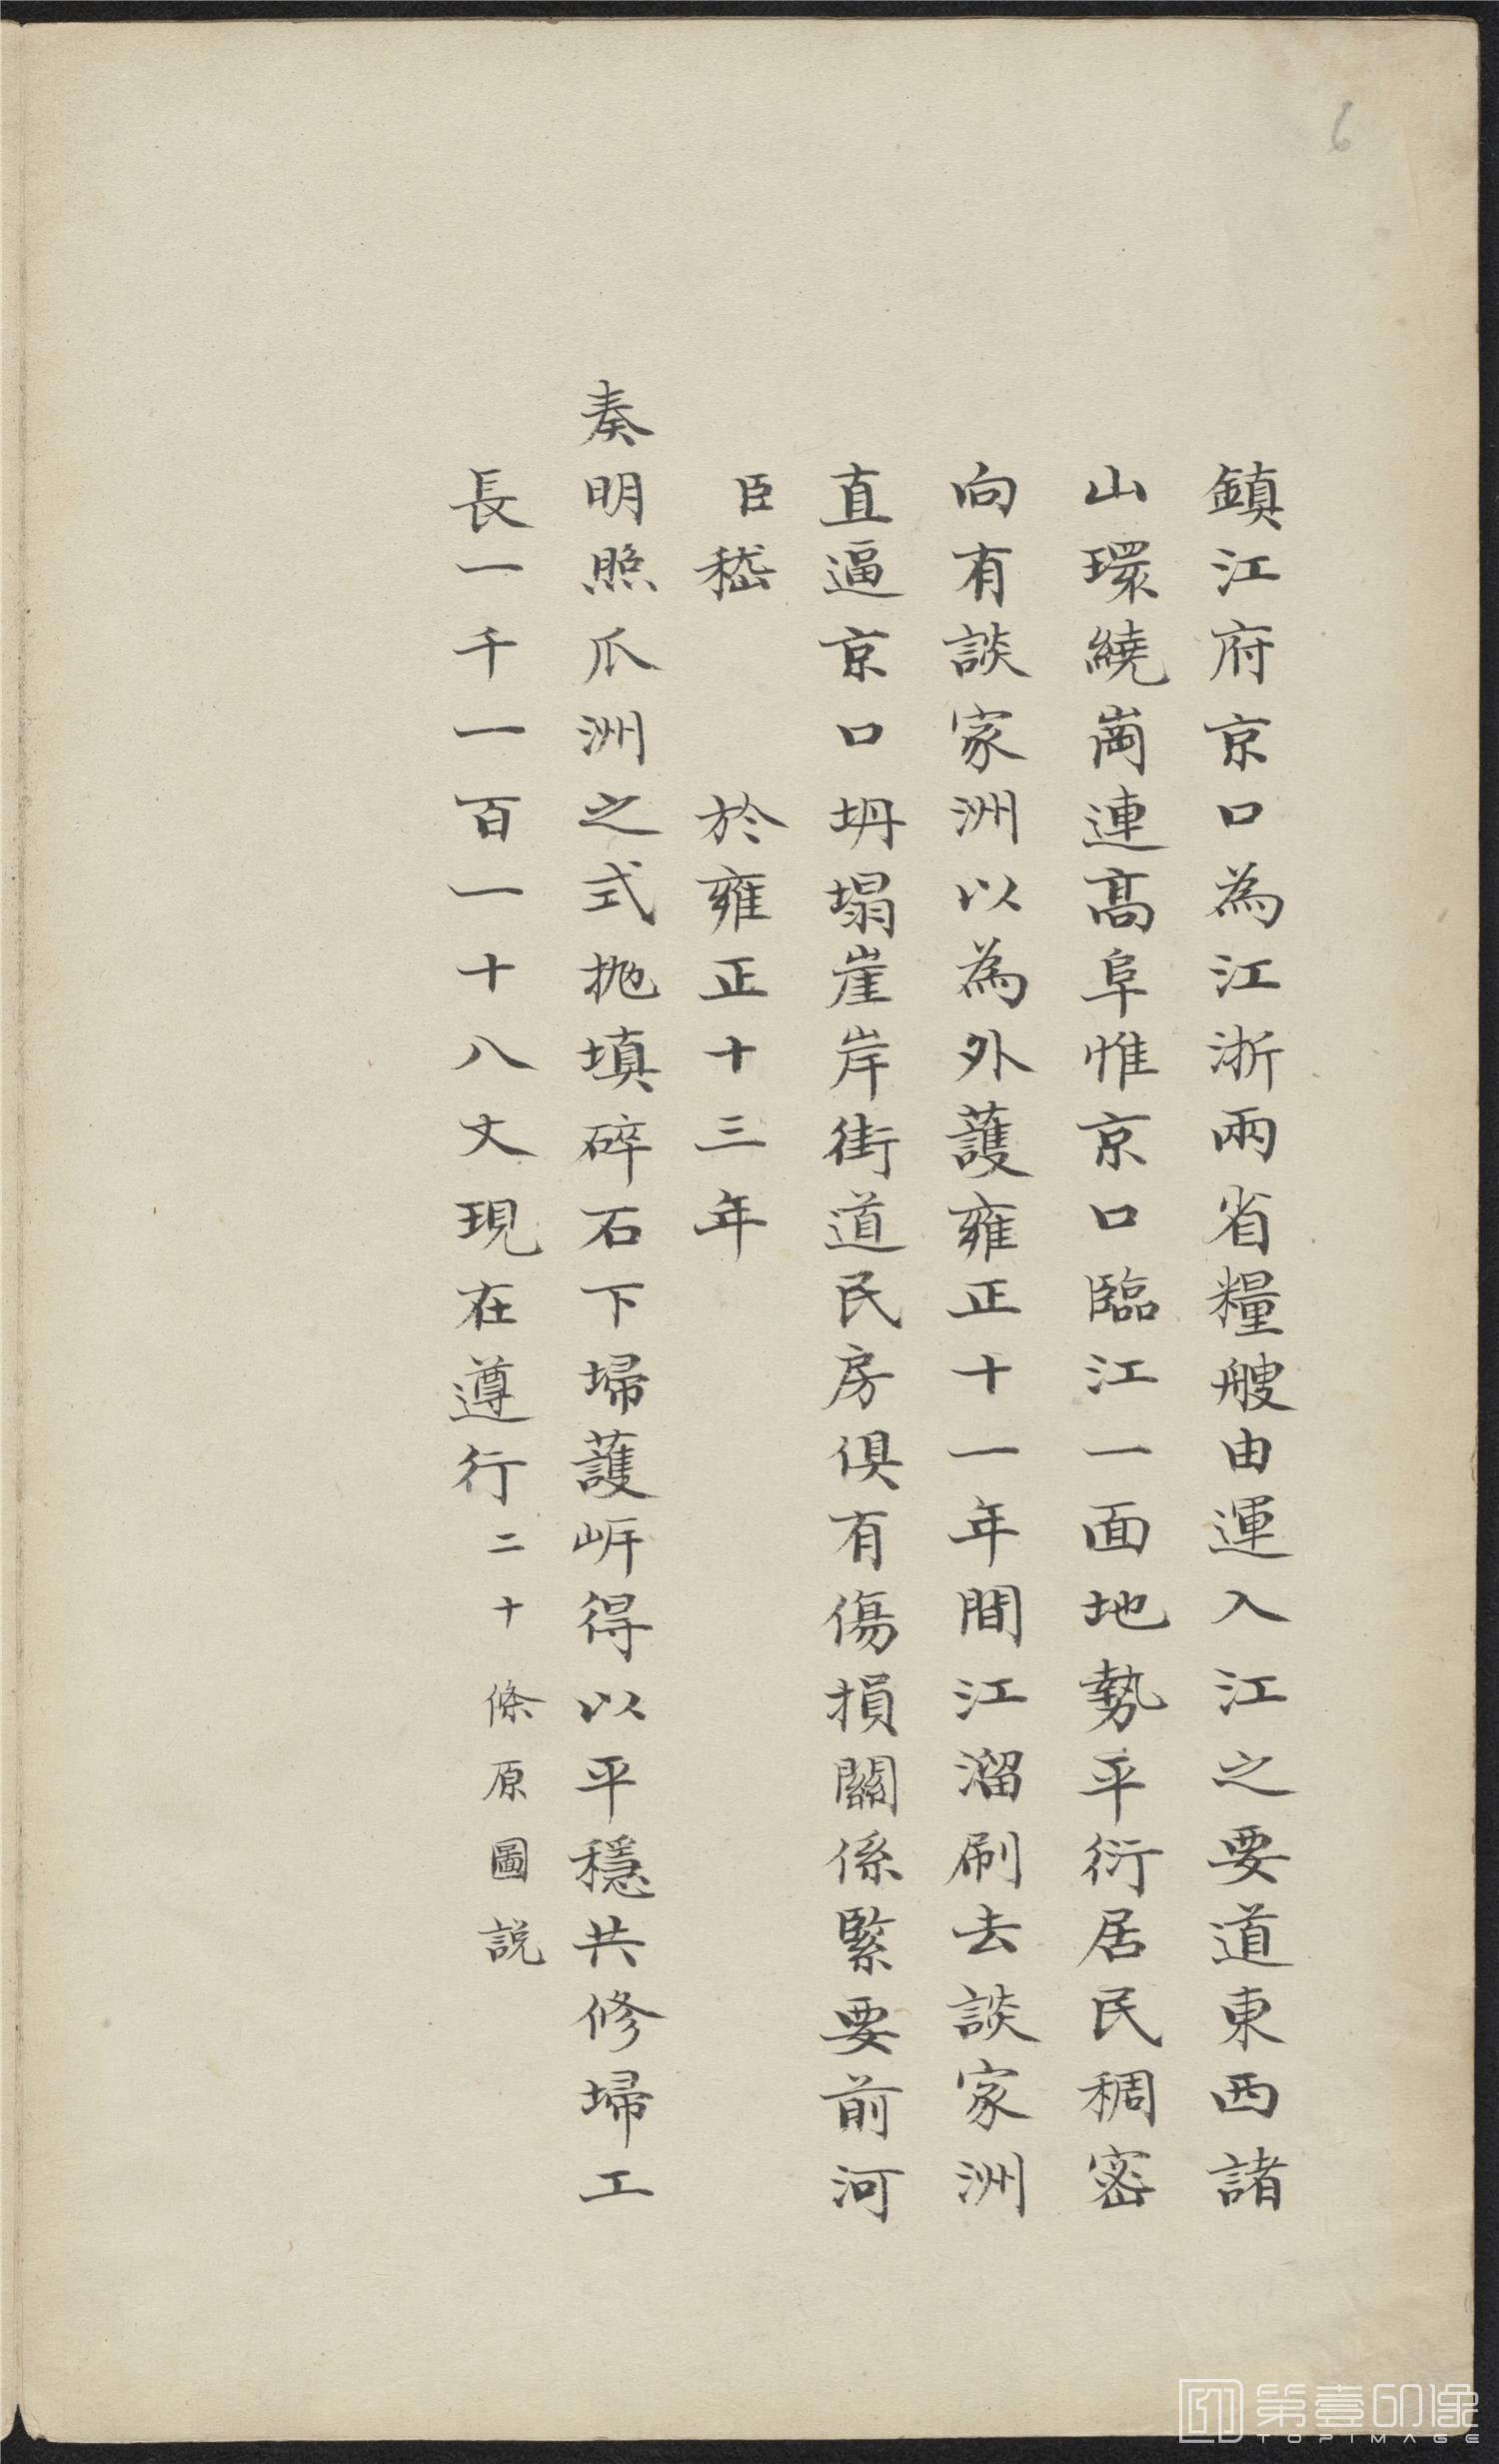 6
鎮江府京口為江浙兩省糧艘由運入江之要道東西諸
山環繞崗連髙阜惟京口臨江一面地勢平衍居民稠密
向有談家洲以為外護雍正十一年間江溜刷去談家洲
直逼京口坍塌崖岸街道民房俱有傷損關係緊要前河
臣嵇　於雍正十三年
奏明照爪洲之式拋填碎石下埽護岍得以平穩共修埽工
長一千一百一十八丈現在遵行二十條原圖説
第壹印像
TOPIMAGE